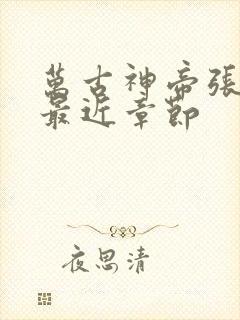 萬古神帝張
最近章節
夜思清